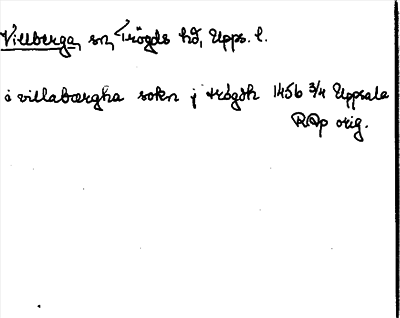 Villberga, sn, Trögds hd, Upps. l.
å villabærgha sokn j trøgdh 1456 3/4 Uppsala
RAp orig.